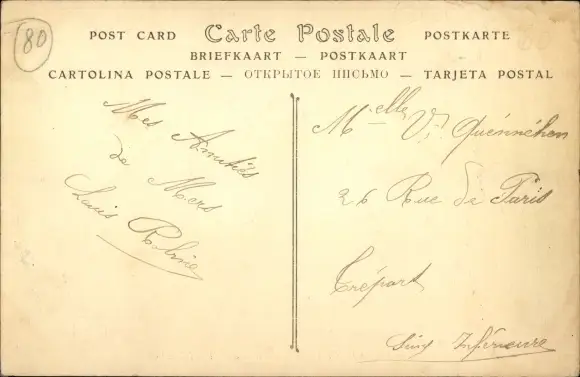 80
POST CARD Carte Postale POSTKARTE
BRIEFKAART — POSTKAART
CARTOLINA POSTALE — ОТКРЫТОЕ ПИСЬМО — TARJETA POSTAL
Mes Amitiés
de Mers
Louis
Melle Quénnéhen
26 Rue de Paris
Tréport
Inférieure